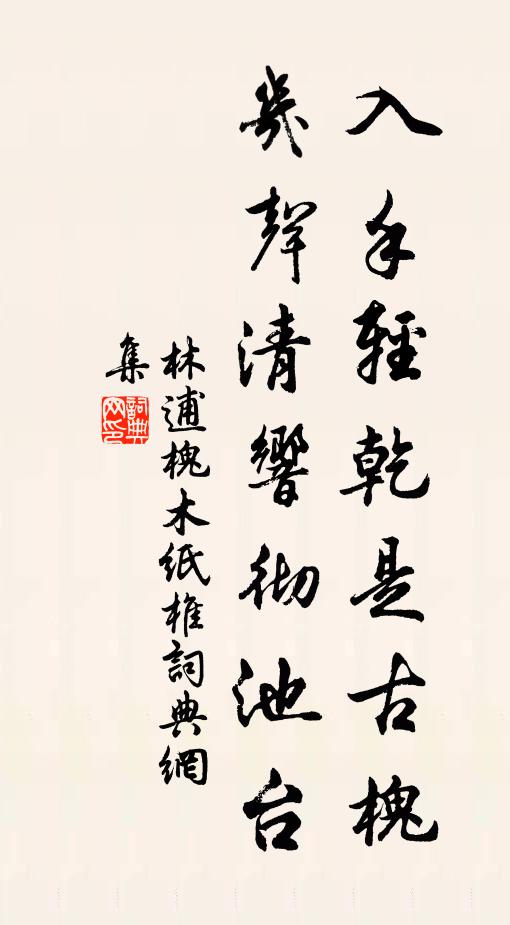 入手輕乾是古槐
幾聲清響彻池台
林逋槐木纸椎詞典網
集
詞典
网印